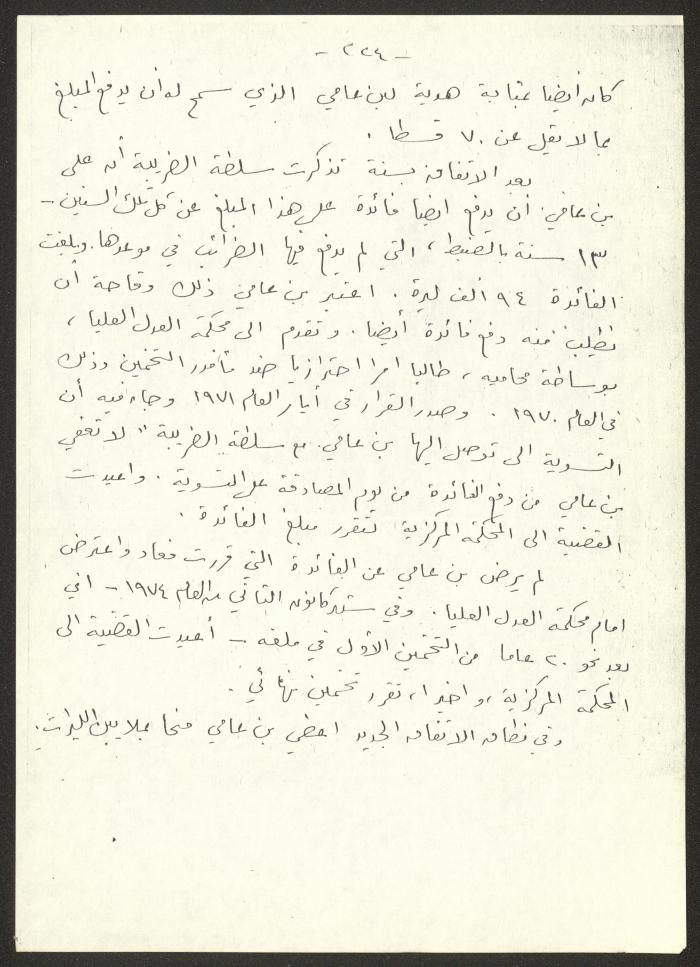 - ٢٢٤ -
كان أيضا بمثابة هدية لبن عامي الذي سمح له أن يدفع المبلغ
بما لا يقل عن ٧٠ قسطا .
بعد الاتفاق بسنة تذكرت سلطة الضريبة أن على
بن عامي أن يدفع ايضا فائدة على هذا المبلغ عن كل تلك السنين -
١٣ سنة بالضبط ، التي لم يدفع فيها الضرائب في موعدها . وبلغت
الفائدة ٩٤ ألف ليرة . اعتبر بن عامي ذلك وقاحة أن
تطلب منه دفع فائدة أيضا . وتقدم الى محكمة العدل العليا ،
بوساطة محاميه ، طالبا امرا احترازيا ضد مأمور التخمين وذلك
في العام ١٩٧٠ . وصدر القرار في أيار العام ١٩٧١ وجاء فيه أن
التسوية التي توصل اليها بن عامي مع سلطة الضريبة " لا تعفي
بن عامي من دفع الفائدة من يوم المصادقة على التسوية . واعيدت
القضية الى المحكمة المركزية لتقرر مبلغ الفائدة .
لم يرض بن عامي عن الفائدة التي قررت فعاد واعترض
امام محكمة العدل العليا . وفي شهر كانون الثاني من العام ١٩٧٤ - اي
بعد نحو ٢٠ عاما من التخمين الأول في ملفه - أعيدت القضية الى
المحكمة المركزية ، واخيرا ، تقرر تخمين نهائي .
وفي نطاق الاتفاق الجديد اعطي بن عامي منحا بملايين الليرات .